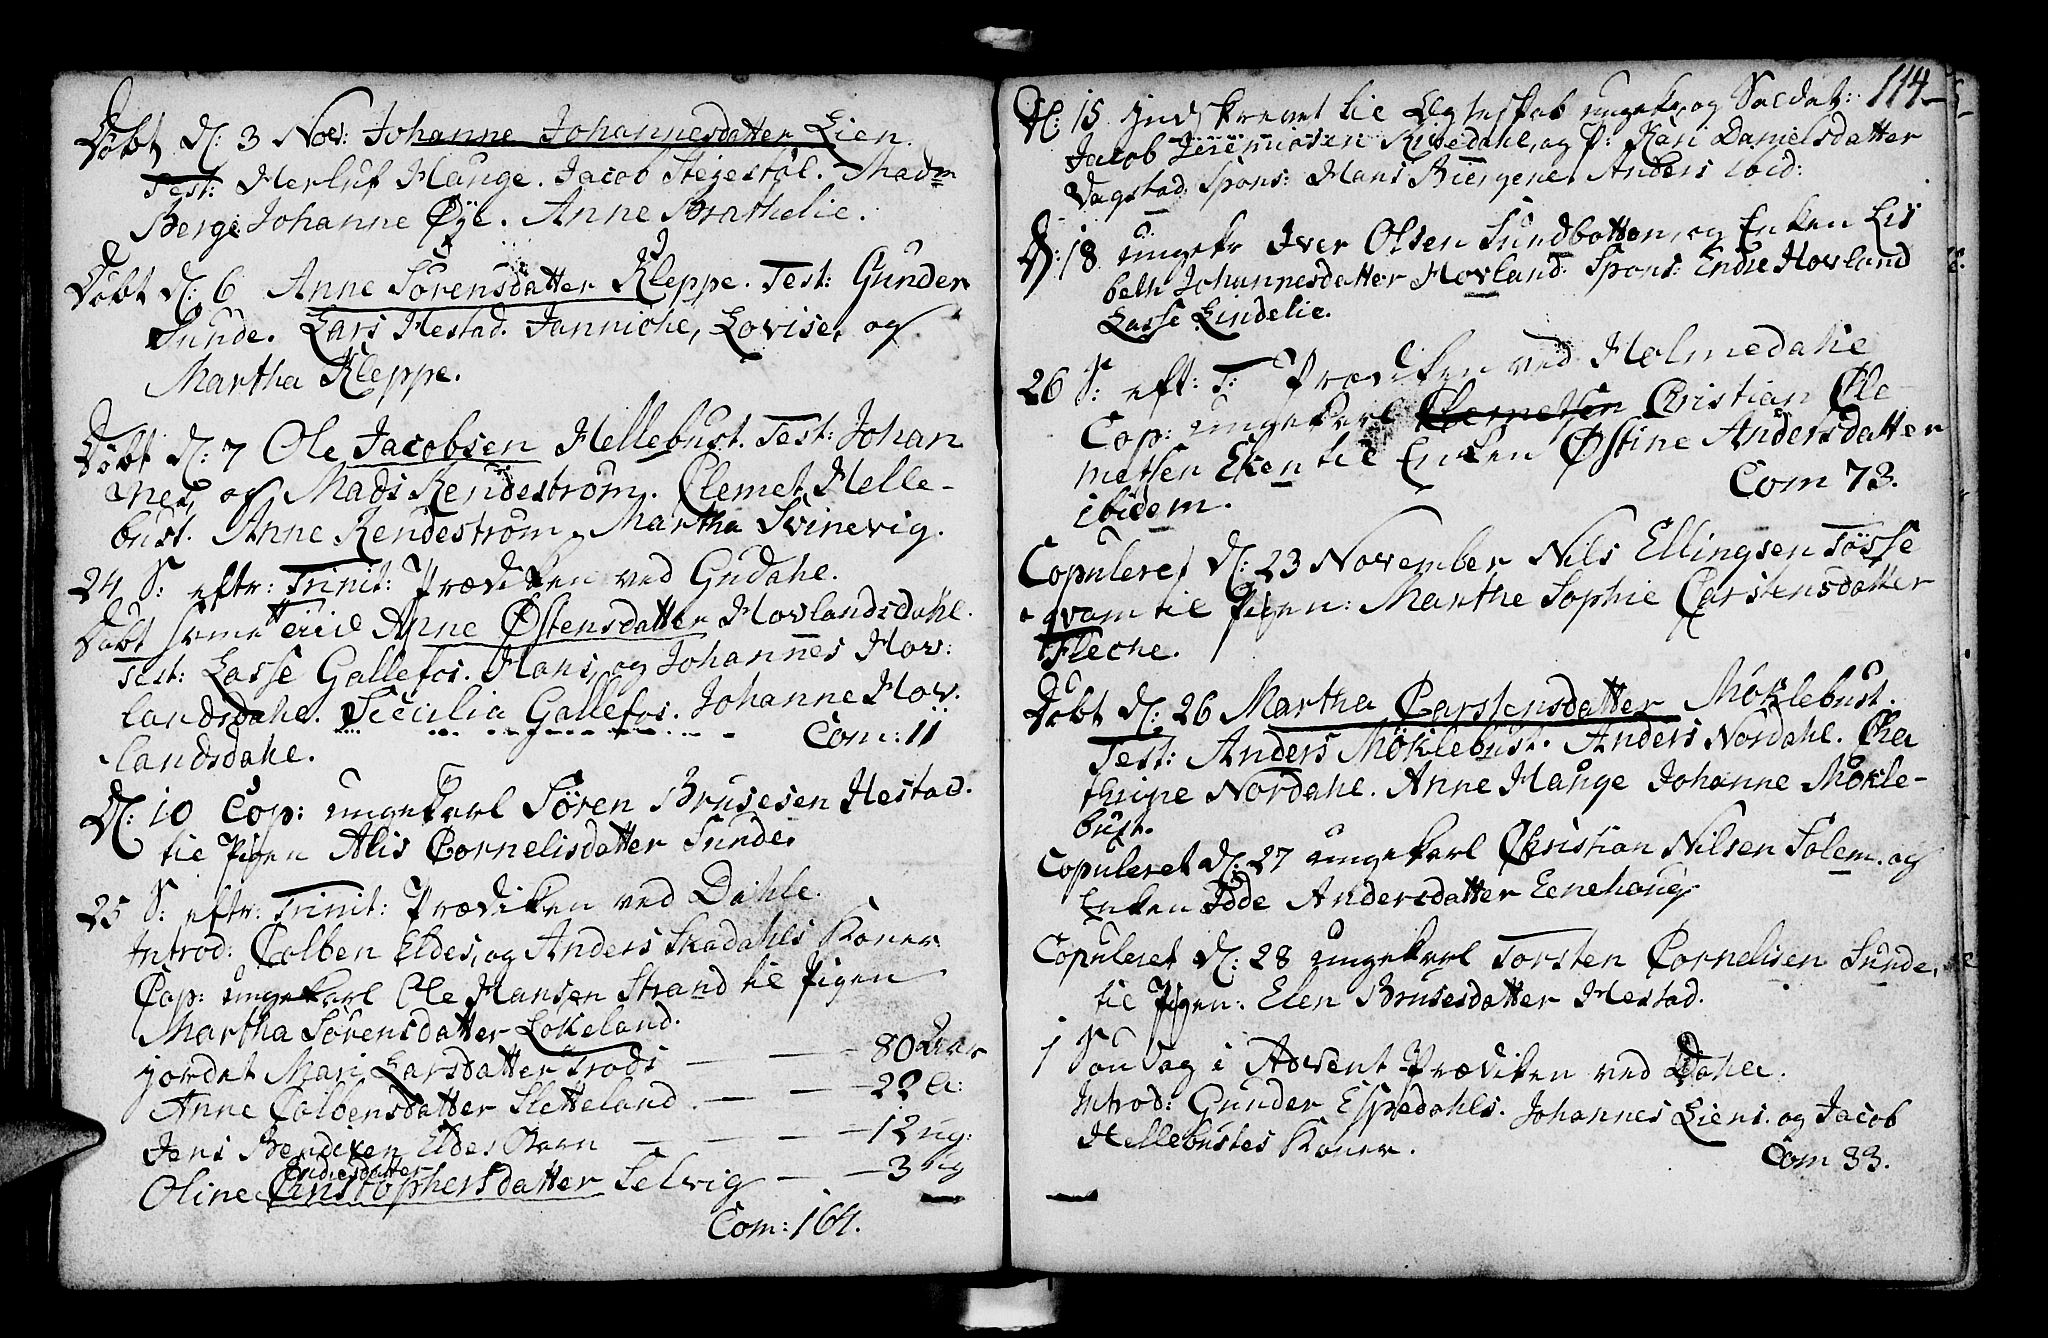 Døbt d: 3 Nov: Johanne Johannesdatter Lien.
Test: Herluf Hauge. Jacob Stejestøl. Mad͞m
Berge Johanne Øÿe. Anne Brathelie.
Døbt d: 6 Anne Sörensdatter Kleppe. Test: Gunder
Sunde. Lars Hestad. Jannicke, Lovise, og
Martha Kleppe.
Døbt d: 7 Ole Jacobsen Hellebust. Test: Johan
nes, og Mads Rendeström. Clemet Helle-
bust. Anne Rendeström. Martha Svinevig.
24 S: eftr: Trinit: Prædiken ved Gudahl.
Døbt samme tid Anne Østensdatter Hovlandsdahl.
Test: Lasse Gallefos. Hans, og Johannes Hov:
landsdahl. Sicilia Gallefos. Johanne Hov.
landsdahl. Com: 11
D: 10 Cop: ungekarl Sören Brusesen Hestad.
til Pigen Alis Cornelisdatter Sunde.
25 S: eftr: Trinit: Prædiken ved Dahle.
Introd: Colben Eldes, og Anders Skadahls Koner
Cop: ungekarl Ole Hansen Strand til Pigen
Martha Sörensdatter Lokeland.
jordet Mari Larsdatter Trods — — — 80 Aar
Anne Colbensdatter Sletteland. — — — 22 a:
Jens Bendixen Eldes Barn — — — — 12 ug:
Endresdatter
Oline Christophersdatter Selvig — — — 3 ug
Com: 164.
114
D: 15 Indskrevet til Ægteskab ungek: og Saldat:
Jacob Jeremiasen Risedahl, og P: Kari Danielsdatter
Vagstad. Spons: Hans Biergene. Anders ibid:
D: 18 ungekr Iver Olsen Sundbotten, og Enken Lis
beth Johannesdatter Hovland. Spons: Endre Hovland
Lasse Lindelie.
26 S: eft: T: Prædiken ved Holmedahl
Cop: ungekarl Christian Cle
metsen Eken til Enken Østine Andersdatter
ibidem. Com 73.
Copuleret d: 23 November Nils Ellingsen Tösse
qvam til Pigen: Marthe Sophie Carstensdatter
Fleche.
Døbt d: 26 Martha Carstensdatter Möklebust.
Test: Anders Möklebust. Anders Nordahl. Cha
thrine Nordahl. Anne Hauge Johanne Mökle-
bust.
Copuleret d: 27 ungekarl Christian Nilsen Solem. og
Enken Odde Andersdatter Eenehaug
Copuleret d: 28 ungekarl Torsten Cornelisen Sunde,
til Pigen: Elen Brusesdatter Hestad.
1 Søndag i Advent Prædiken ved Dahle.
Introd: Gunder Espedahls. Johannes Liens. og Jacob
Hellebustes Koner.
Com 33.